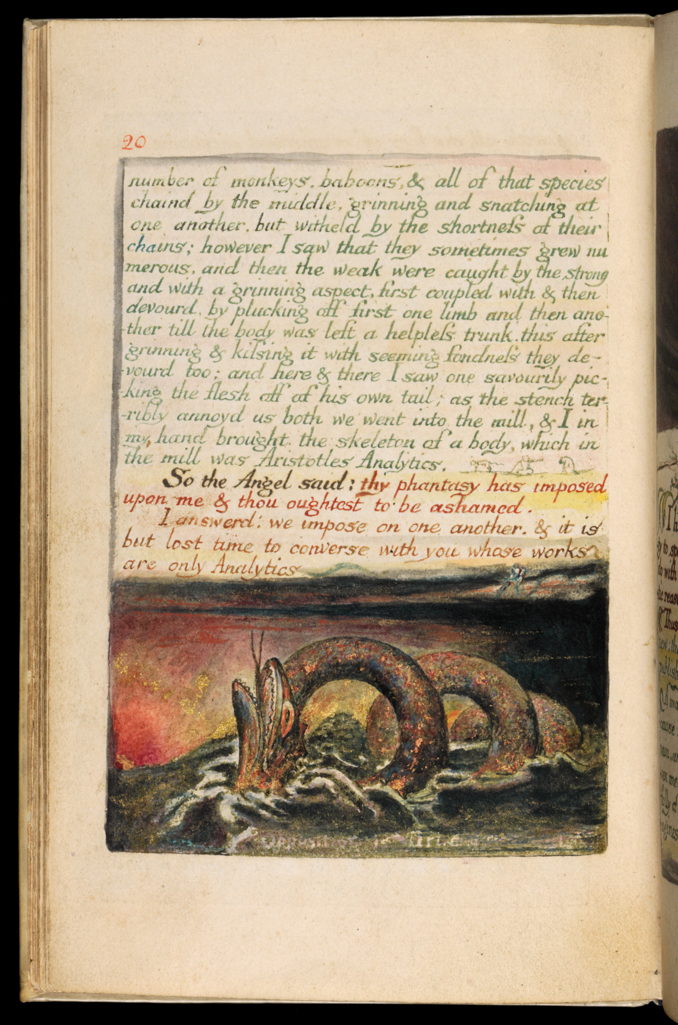 20
number of monkeys, baboons, & all of that species
chaind by the middle, grinning and snatching at
one another, but witheld by the shortneſs of their
chains; however I saw that they sometimes grew nu
merous, and then the weak were caught by the strong
and with a grinning aspect, first coupled with & then
devourd, by plucking off first one limb and then ano-
ther till the body was left a helpleſs trunk. this after
grinning & kiſsing it with seeming fondneſs they de-
-vourd too; and here & there I saw one savourily pic-
-king the flesh off of his own tail; as the stench ter-
-ribly annoyd us both we went into the mill, & I in
my hand brought the skeleton of a body, which in
the mill was Aristotles Analytics.
So the Angel said: thy phantasy has imposed
upon me & thou oughtest to be ashamed.
I answerd: we impose on one another, & it is
but lost time to converse with you whose works
are only Analytics
Opposition is